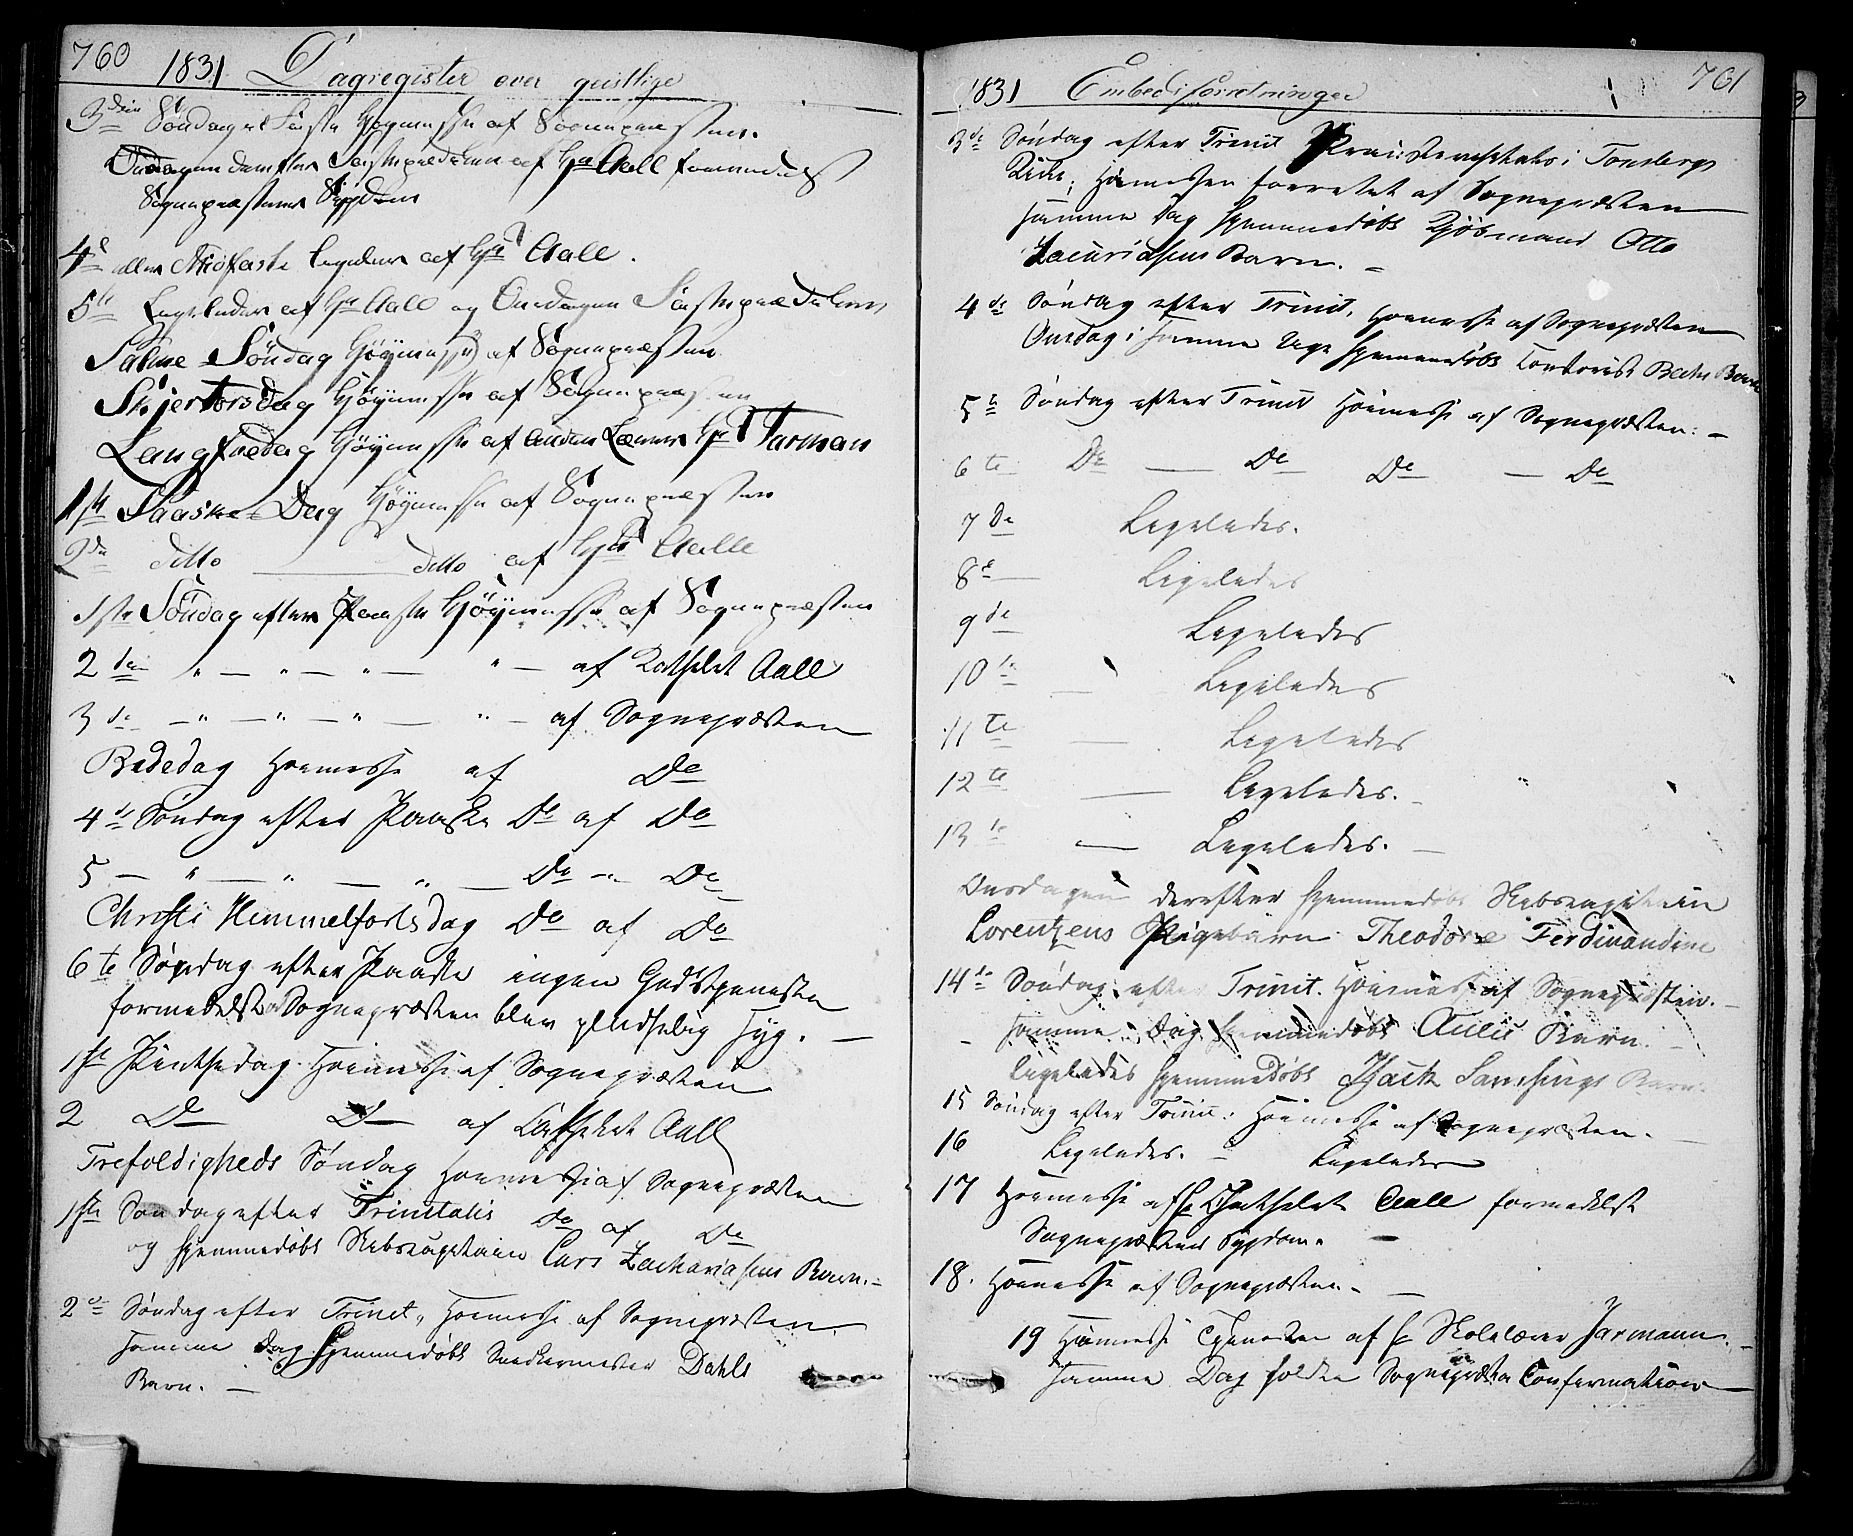 760 1831 Dagregister over geistlige
3die Søndag i Faste Høymesse af Sognepræsten.
Onsdagen derefter Fasteprædiken af Hr Aall formedelst
Sognepræstens Sygdom
4de eller Midfaste ligeledes af Hr Aall.
5te Ligeledes af Hr Aall og Onsdagen Fasteprædiken
Palme Søndag Høymesse af Sognepræsten
Skjertorsdag Høymesse af Sognepræsten
Langfredag Høymesse af anden Lærer Hr Jarman
1ste Paaske-Dag Høymesse af Sognepræsten
2den ditto ditto af Hr Aall
1ste Søndag efter Paaske Høymesse af Sognepræsten
2den " — " — " — " — af Katheket Aall
3de — " — " — " — " — af Sognepræsten
Bededag Høimesse af Do
4de Søndag efter Paaske Do af Do
5 — " — " — " — Do — " Do
Christi Himmelfartsdag Do af Do
6te Søndag efter Paaske ingen Gudstjeneste
formedelst Sognepræsten blev pludselig syg. —
1ste Pintsedag Høimesse af Sognepræsten
2 Do Do af Catheket Aall
Trefoldigheds Søndag Høimesse af Sognepræsten
1ste Søndag efter Trinitatis Do af Do
og hjemmedøbt Skibscapitain Lars Zachariasens Barn. —
2de Søndag efter Trinit, Høimesse af Sognepræsten
samme Dag hjemmedøbt Snedkermester Dahls
Barn. —
1831 Embedsforretninger 761
3de Søndag efter Trinit i Tønsbergs
Kirke; Høimessen forrettet af Sognepræsten
samme Dag hjemmedøbt Kjøbmand Otto
Zacariasens Barn. —
4de Søndag efter Trinit, Høimesse af Sognepræsten
Onsdag i samme Uge hjemmedøbt Barn
5te Søndag efter Trinit Høimesse af Sognepræsten. —
6te Do — Do Do — Do
7de Ligeledes.
8de — Ligeledes
9de Ligeledes
10de — Ligeledes
11te — Ligeledes
12te — Ligeledes. —
13de — Ligeledes. —
Onsdagen derefter hjemmedøbt Skibscapitain
Lorentzens Pigebarn Theodore Ferdinandine
14de Søndag efter Trinit. Høimesse af Sognepræsten. —
samme Dag hjemmedøbt Barn. —
ligeledes hjemmedøbt Barn.
15 Søndag efter Trinit: Høimesse af Sognepræsten. —
16 Ligeledes. — Ligeledes
17 Høimesse af Hr Catheket Aall formedelst
Sognepræstens Sygdom. —
18. Høimesse af Sognepræsten. —
19 Høimesse Tjenesten af Hr Skolelærer Jarmann. —
samme Dag holdt Sognepræsten Confirmation